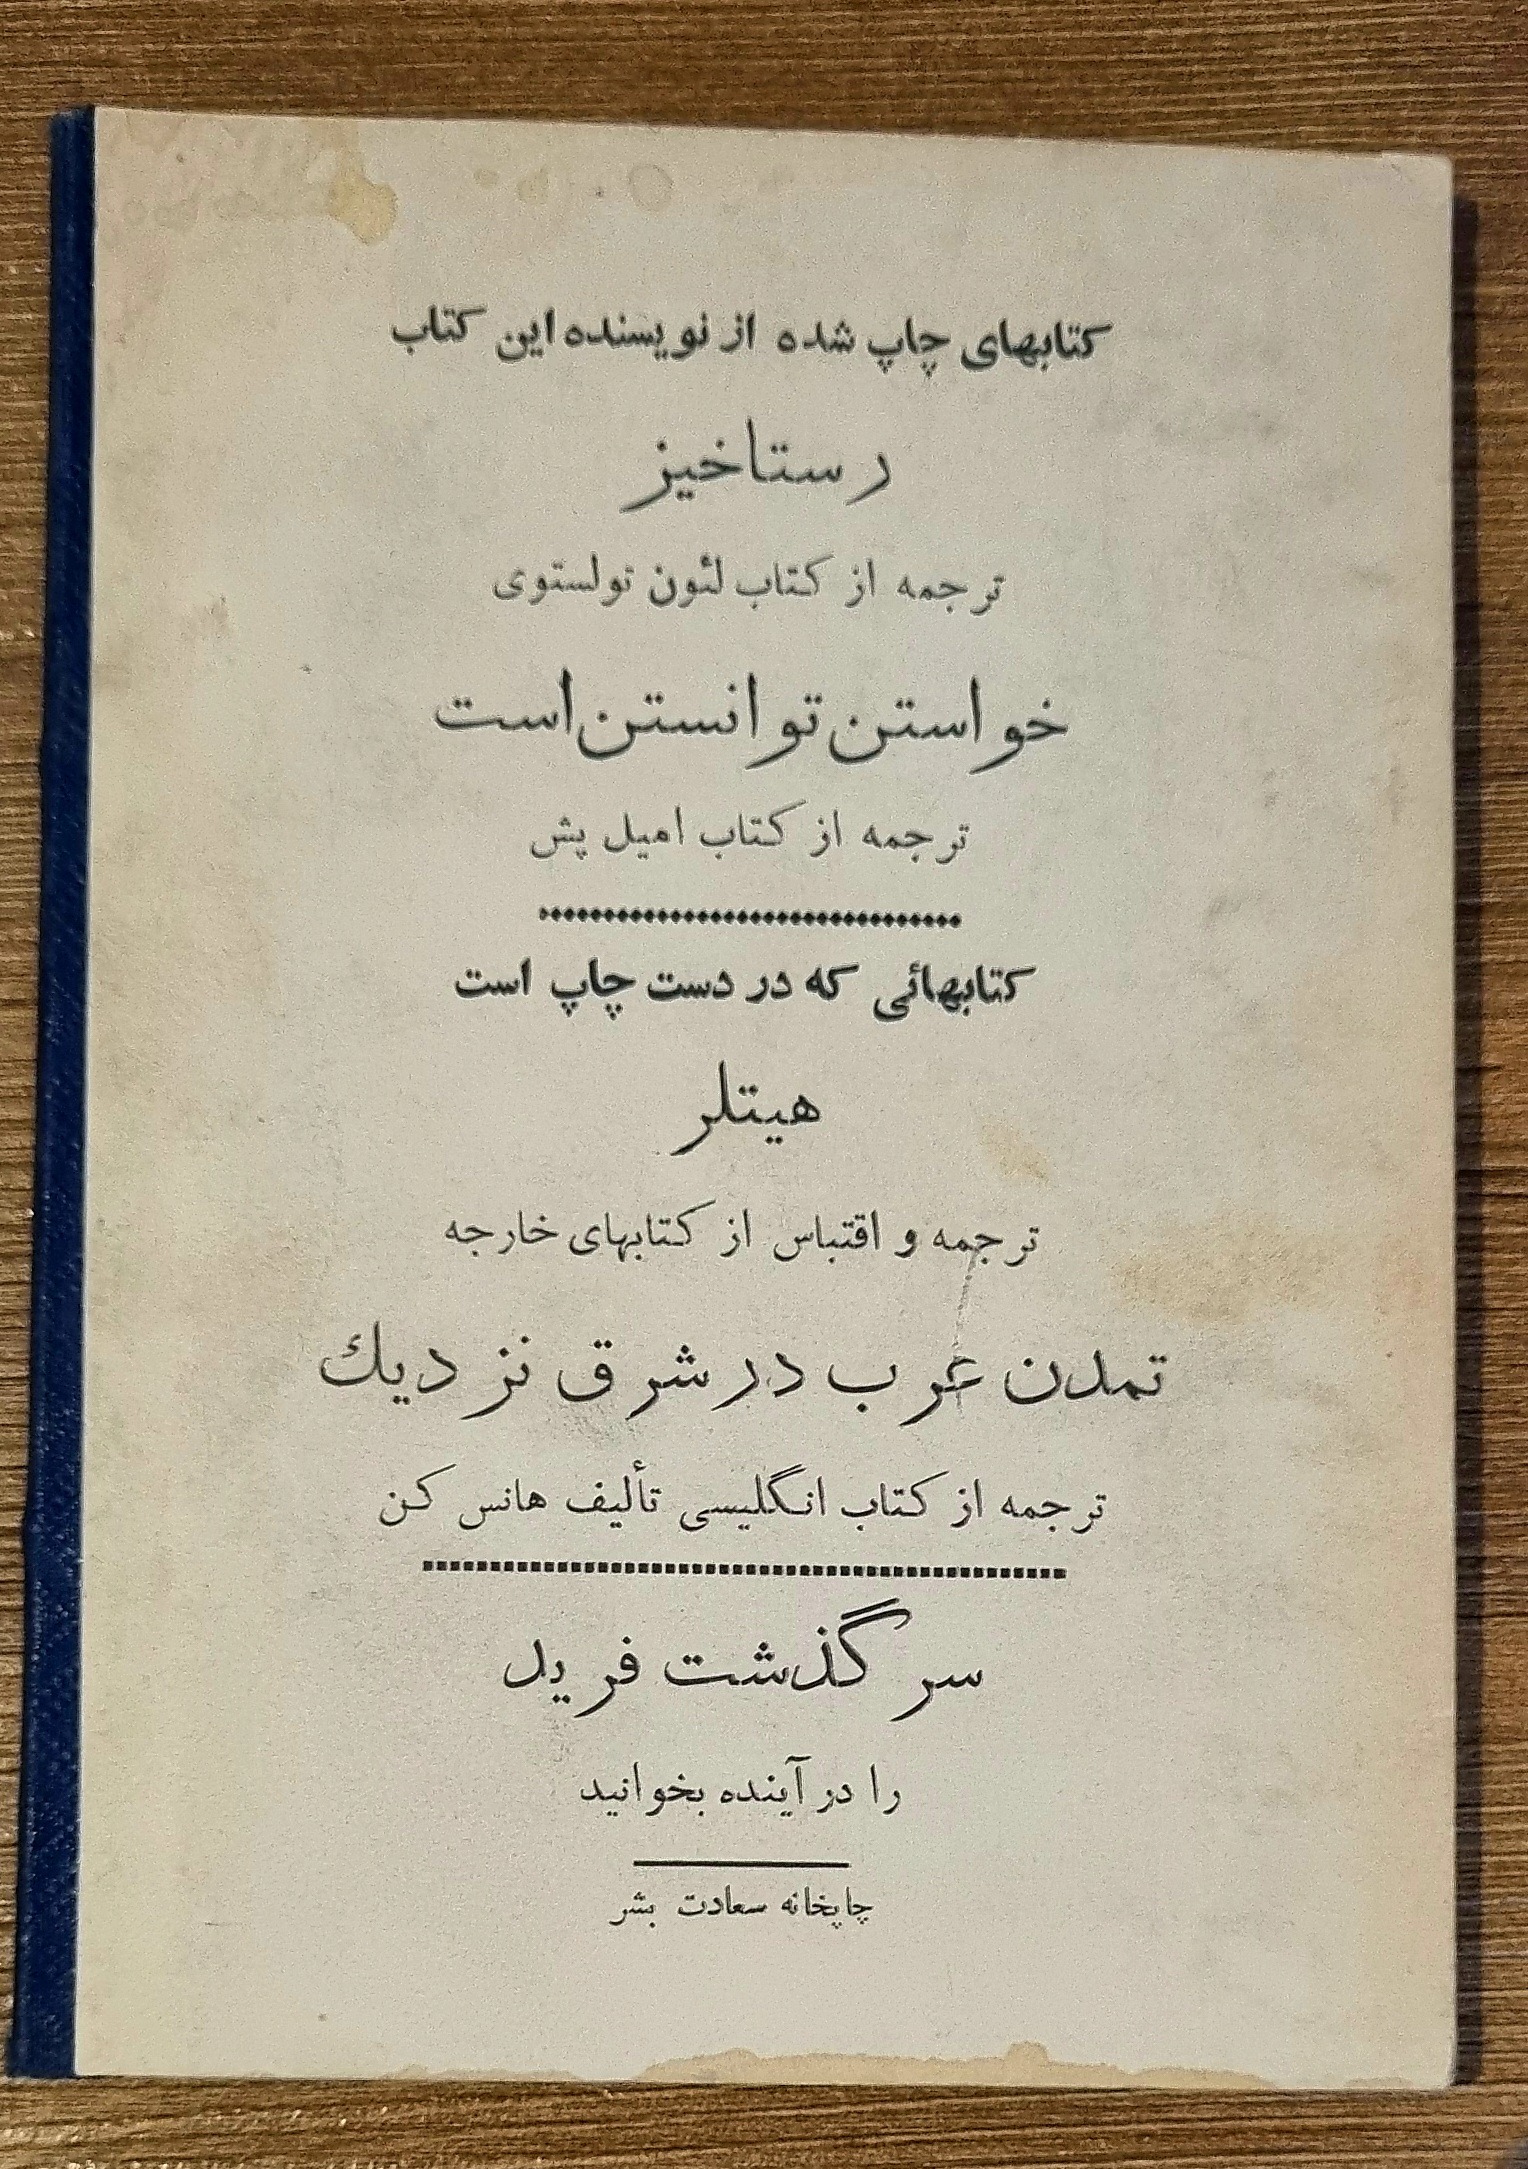 کتابهای چاپ شده از نویسنده این کتاب
رستاخیز
ترجمه از کتاب لئون تولستوی
خواستن توانستن است
ترجمه از کتاب امیل پش
کتابهائی که در دست چاپ است
هیتلر
ترجمه و اقتباس از کتابهای خارجه
تمدن عرب در شرق نزدیك
ترجمه از کتاب انگلیسی تألیف هانس کن
سرگذشت فرید
را در آینده بخوانید
چاپخانه سعادت بشر